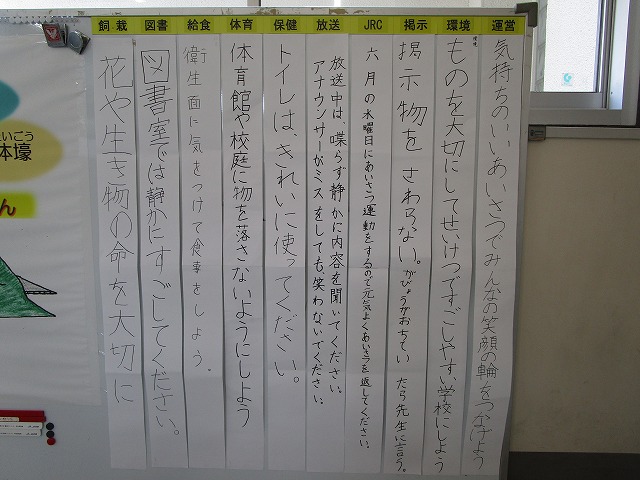 運営
気持ちのいいあいさつでみんなの笑顔の輪をつなげよう
環境
環境
ものを大切にしてせいけつですごしやすい学校にしよう
掲示
掲示物をさわらない。がびょうがおちていたら先生に言う。
JRC
六月の水曜日にあいさつ運動をするので元気よくあいさつを返してください。
放送
放送中は、喋らず静かに内容を聞いてください。
アナウンサーがミスをしても笑わないでください。
保健
トイレは、きれいに使ってください。
体育
体育館や校庭に物を落さないようにしよう
給食
衛生面に気をつけて食事をしよう。
図書
図書室では静かにすごしてください。
飼栽
花や生き物の命を大切に
いこう
体壕
ん